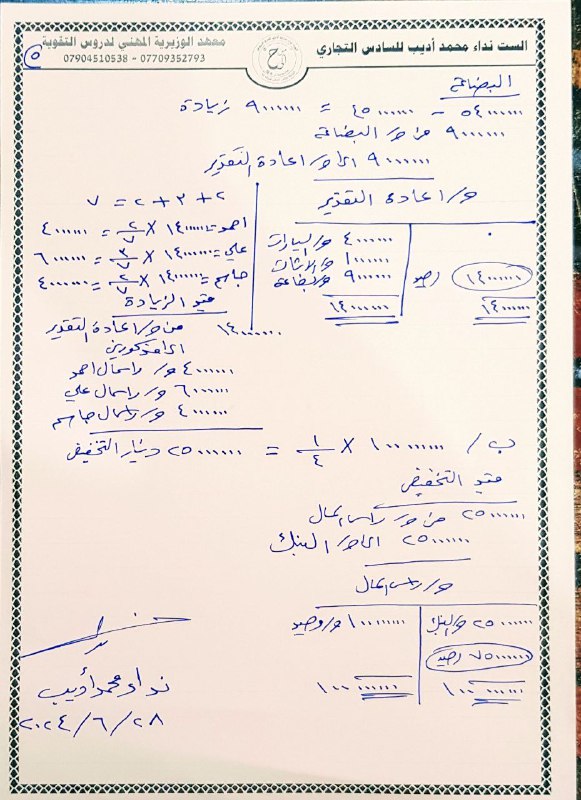 الست نداء محمد أديب للسادس التجاري
معهد الوزيرية المهني لدروس التقوية
07904510538 - 07709352793
٥
البضاعة
٥٤٠٠٠٠٠٠ - ٤٥٠٠٠٠٠٠ = ٩٠٠٠٠٠٠ زيادة
٩٠٠٠٠٠٠ من حـ/ البضاعة
٩٠٠٠٠٠٠ الى حـ/ اعادة التقدير
حـ/ اعادة التقدير
٤٠٠٠٠٠٠ حـ/ السيارات
١٠٠٠٠٠٠ حـ/ الاثاث
٩٠٠٠٠٠٠ حـ/ البضاعة
١٤٠٠٠٠٠٠
٠
١٤٠٠٠٠٠٠ رصيد
١٤٠٠٠٠٠٠
٢ + ٣ + ٢ = ٧
احمد = ١٤٠٠٠٠٠٠ × ٢/٧ = ٤٠٠٠٠٠٠
علي = ١٤٠٠٠٠٠٠ × ٣/٧ = ٦٠٠٠٠٠٠
جاسم = ١٤٠٠٠٠٠٠ × ٢/٧ = ٤٠٠٠٠٠٠
قيد الزيادة
١٤٠٠٠٠٠٠ من حـ/ اعادة التقدير
الى مذكورين
٤٠٠٠٠٠٠ حـ/ راسمال احمد
٦٠٠٠٠٠٠ حـ/ راسمال علي
٤٠٠٠٠٠٠ حـ/ راسمال جاسم
ب/ ١٠٠٠٠٠٠٠٠ × ١/٤ = ٢٥٠٠٠٠٠٠ دينار التخفيض
قيد التخفيض
٢٥٠٠٠٠٠٠ من حـ/ راس المال
٢٥٠٠٠٠٠٠ الى حـ/ البنك
حـ/ راس المال
٢٥٠٠٠٠٠٠ حـ/ البنك
٧٥٠٠٠٠٠٠ رصيد
١٠٠٠٠٠٠٠٠
١٠٠٠٠٠٠٠٠ حـ/ رصيد
١٠٠٠٠٠٠٠٠
نداء محمد أديب
٢٠٢٤/٦/٢٨